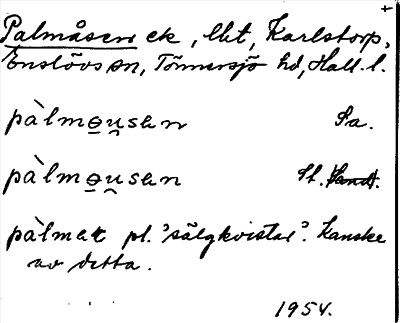 Palmåsen ek, lht, Karlstorp,
Enslövs sn, Tönnersjö hd, Hall. l.
pàlmo̱u̯sen Sa.
pàlmo̱u̯sen St.
pàlmar pl. "sälgkvistar". Kanske
av detta.
1954.